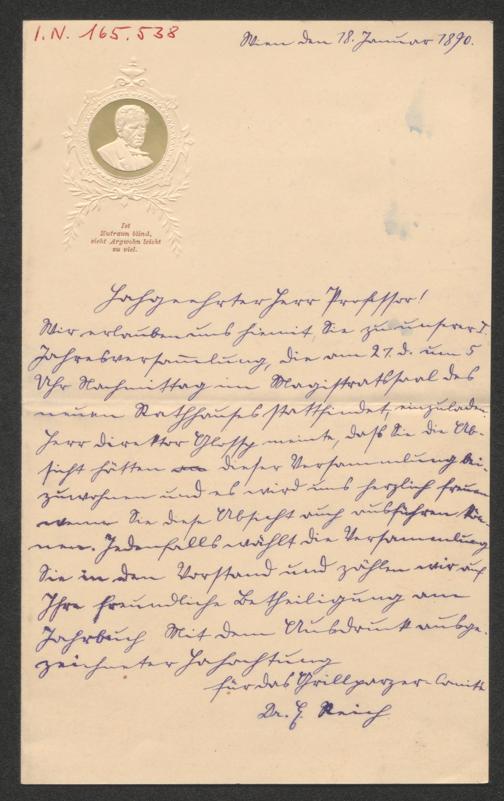 I.N. 165.538
Wien den 18. Januar 1890.
Ist
Zutraun blind,
sieht Argwohn leicht
zu viel.
Hochgeehrter Herr Professor!
Wir erlauben uns hiemit, Sie zu unserer I.
Jahresversammlung, die am 27. d. um 5
Uhr Nachmittag im Magistratssaal des
neuen Rathhauses stattfindet, einzuladen.
Herr Direktor Glossy meinte, daß Sie die Ab-
sicht hätten dieser Versammlung bei-
zuwohnen und es wird uns herzlich freuen
wenn Sie diese Absicht auch ausführen kön-
nen. Jedenfalls wählt die Versammlung
Sie in den Vorstand und zählen wir auf
Ihre freundliche Betheiligung am
Jahrbuch Mit dem Ausdruck ausge-
zeichneter Hochachtung
für das Grillparzer-Comité
Dr. E. Reich